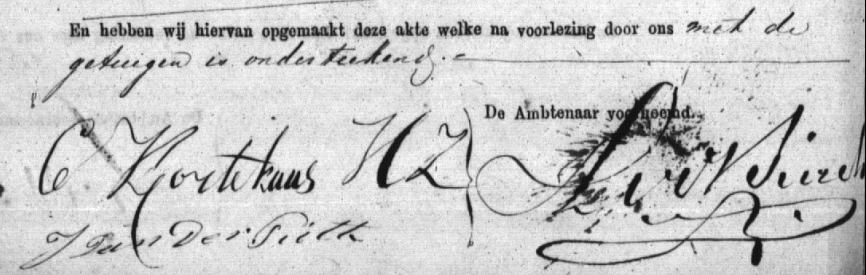 En hebben wij hiervan opgemaakt deze akte welke na voorlezing door ons met de
getuigen is onderteekend.
De Ambtenaar voornoemd.
C Kortekaas HZ
J van Der